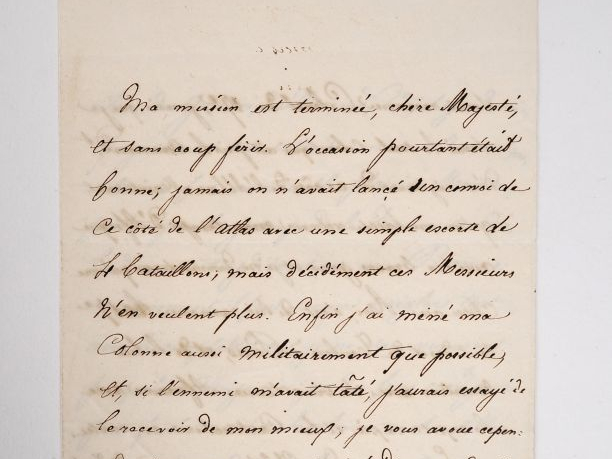 Ma mission est terminée, chère Majesté,
et sans coup férir. L'occasion pourtant était
bonne; jamais on n'avait lancé un convoi de
ce côté de l'atlas avec une simple escorte de
4 bataillons; mais décidément ces Messieurs
n'en veulent plus. Enfin j'ai mené ma
Colonne aussi militairement que possible,
et, si l'ennemi m'avait tâté, j'aurais essayé de
le recevoir de mon mieux; je vous avoue cepen: